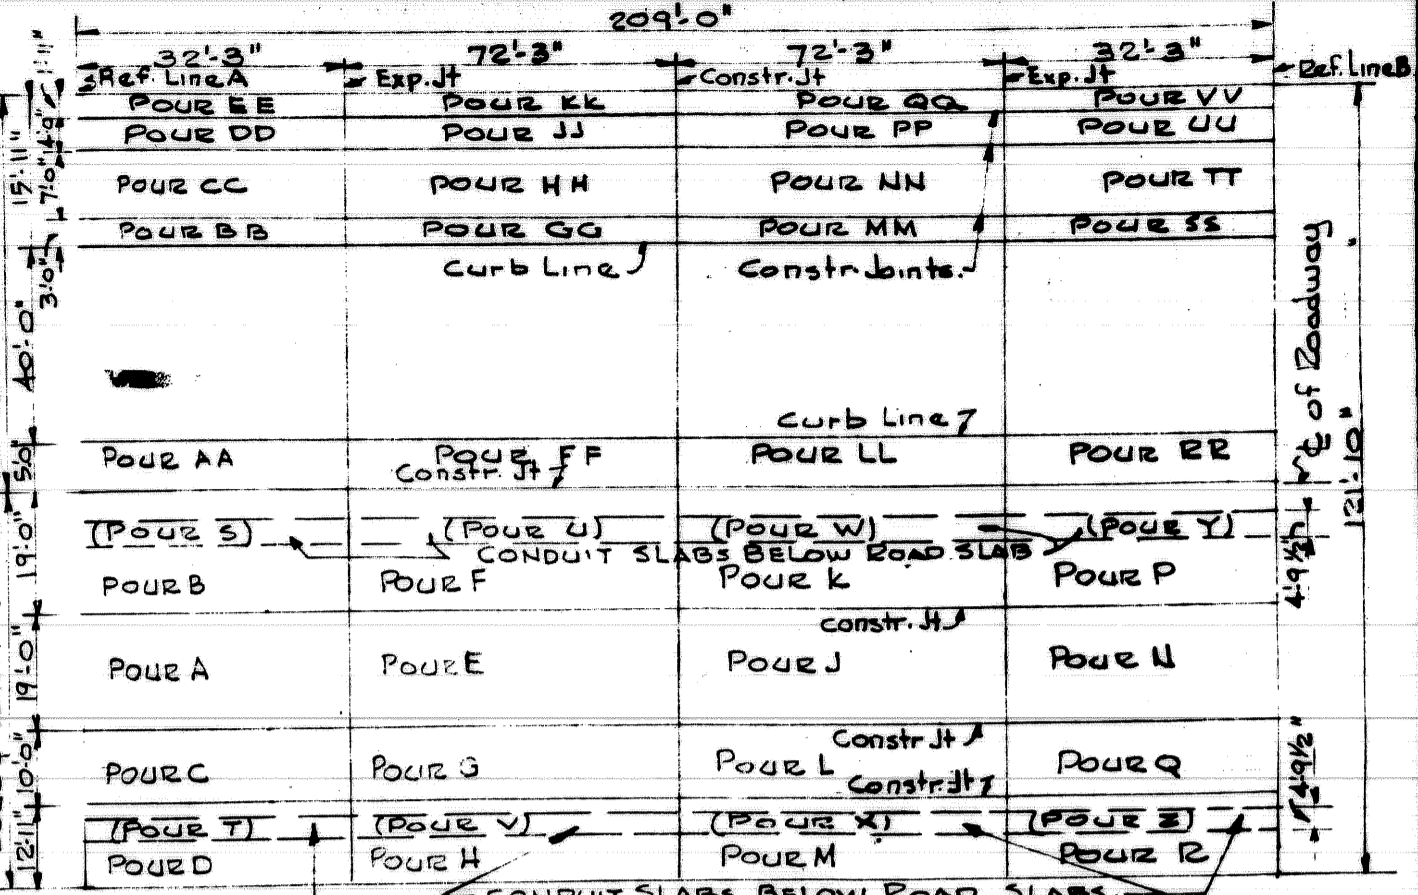 209'-0"
32'-3" 72'-3" 72'-3" 32'-3"
Ref. Line A Exp. Jt Constr. Jt Exp. Jt Ref. Line B
POUR EE POUR KK POUR QQ POUR VV
POUR DD POUR JJ POUR PP POUR UU
POUR CC POUR HH POUR NN POUR TT
POUR BB POUR GG POUR MM POUR SS
Curb Line Constr. Joints.
Curb Line
POUR AA POUR FF POUR LL POUR RR
Constr. Jt
(POUR S) (POUR U) (POUR W) (POUR Y)
CONDUIT SLABS BELOW ROAD SLAB
POUR B POUR F POUR K POUR P
Constr. Jt
POUR A POUR E POUR J POUR N
Constr Jt
POUR C POUR G POUR L POUR Q
Constr. Jt
(POUR T) (POUR V) (POUR X) (POUR Z)
POUR D POUR H POUR M POUR R
CONDUIT SLABS BELOW ROAD SLABS
1'-11"
15'-11"
7'-0"
3'-0"
40'-0"
5'-0"
19'-0"
19'-0"
10'-0"
12'-11"
℄ of Roadway
121'-10"
4'-9½"
4'-9½"